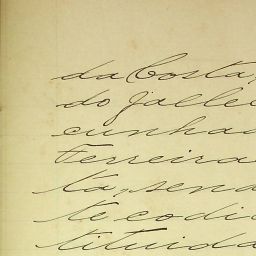 da Costa,
do fallec
cunhad
Ferreira
ta, send
te codi
tituida